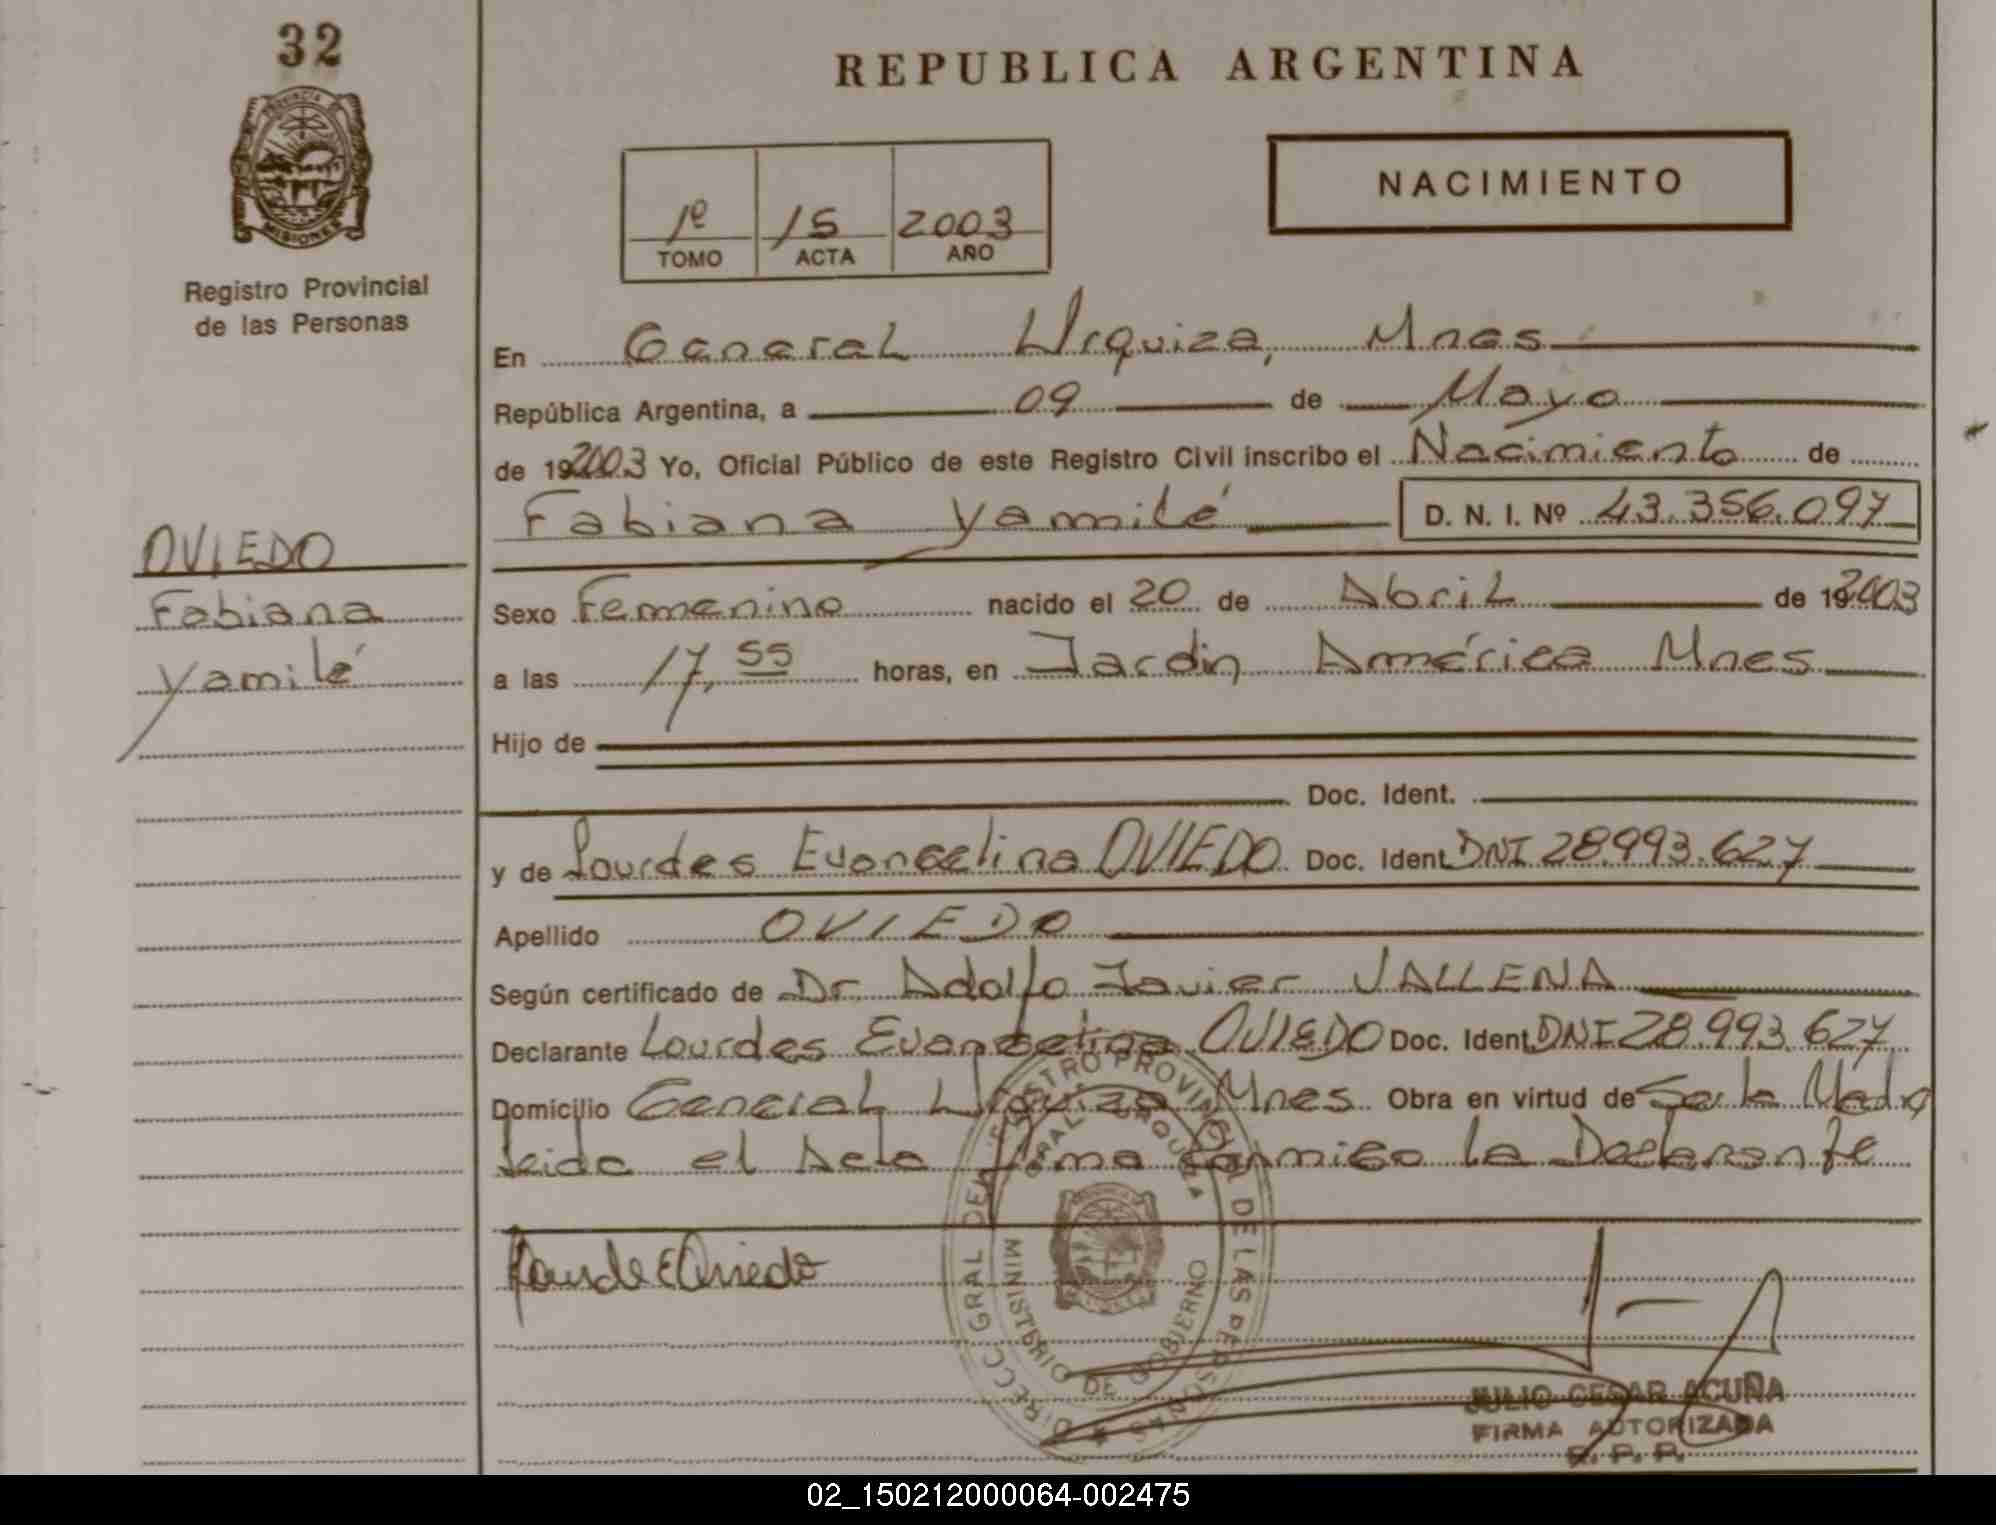 32
PROVINCIA DE
MISIONES
Registro Provincial
de las Personas
REPUBLICA ARGENTINA
NACIMIENTO
1º 15 2003
TOMO ACTA AÑO
En General Urquiza, Mnes
República Argentina, a 09 de Mayo
de 192003 Yo, Oficial Público de este Registro Civil inscribo el Nacimiento de
Fabiana Yamilé D. N. I. Nº 43.356.097
OVIEDO
Fabiana
Yamilé
Sexo Femenino nacido el 20 de Abril de 192003
a las 17,55 horas, en Jardin América Mnes
Hijo de
Doc. Ident.
y de Lourdes Evangelina OVIEDO Doc. Ident. DNI 28.993.627
Apellido OVIEDO
Según certificado de Dr. Adolfo Javier VALLENA
Declarante Lourdes Evangelina OVIEDO Doc. Ident. DNI 28.993.627
Domicilio General Urquiza Mnes Obra en virtud de Ser la Madre
Leida el Acta firma conmigo la Declarante
Lourde E Oviedo
DIRECC GRAL DEL REGISTRO PROVINCIAL DE LAS PERSONAS
GRAL URQUIZA
MINISTERIO DE GOBIERNO
JULIO CESAR ACUÑA
FIRMA AUTORIZADA
R. P. P.
02_150212000064-002475